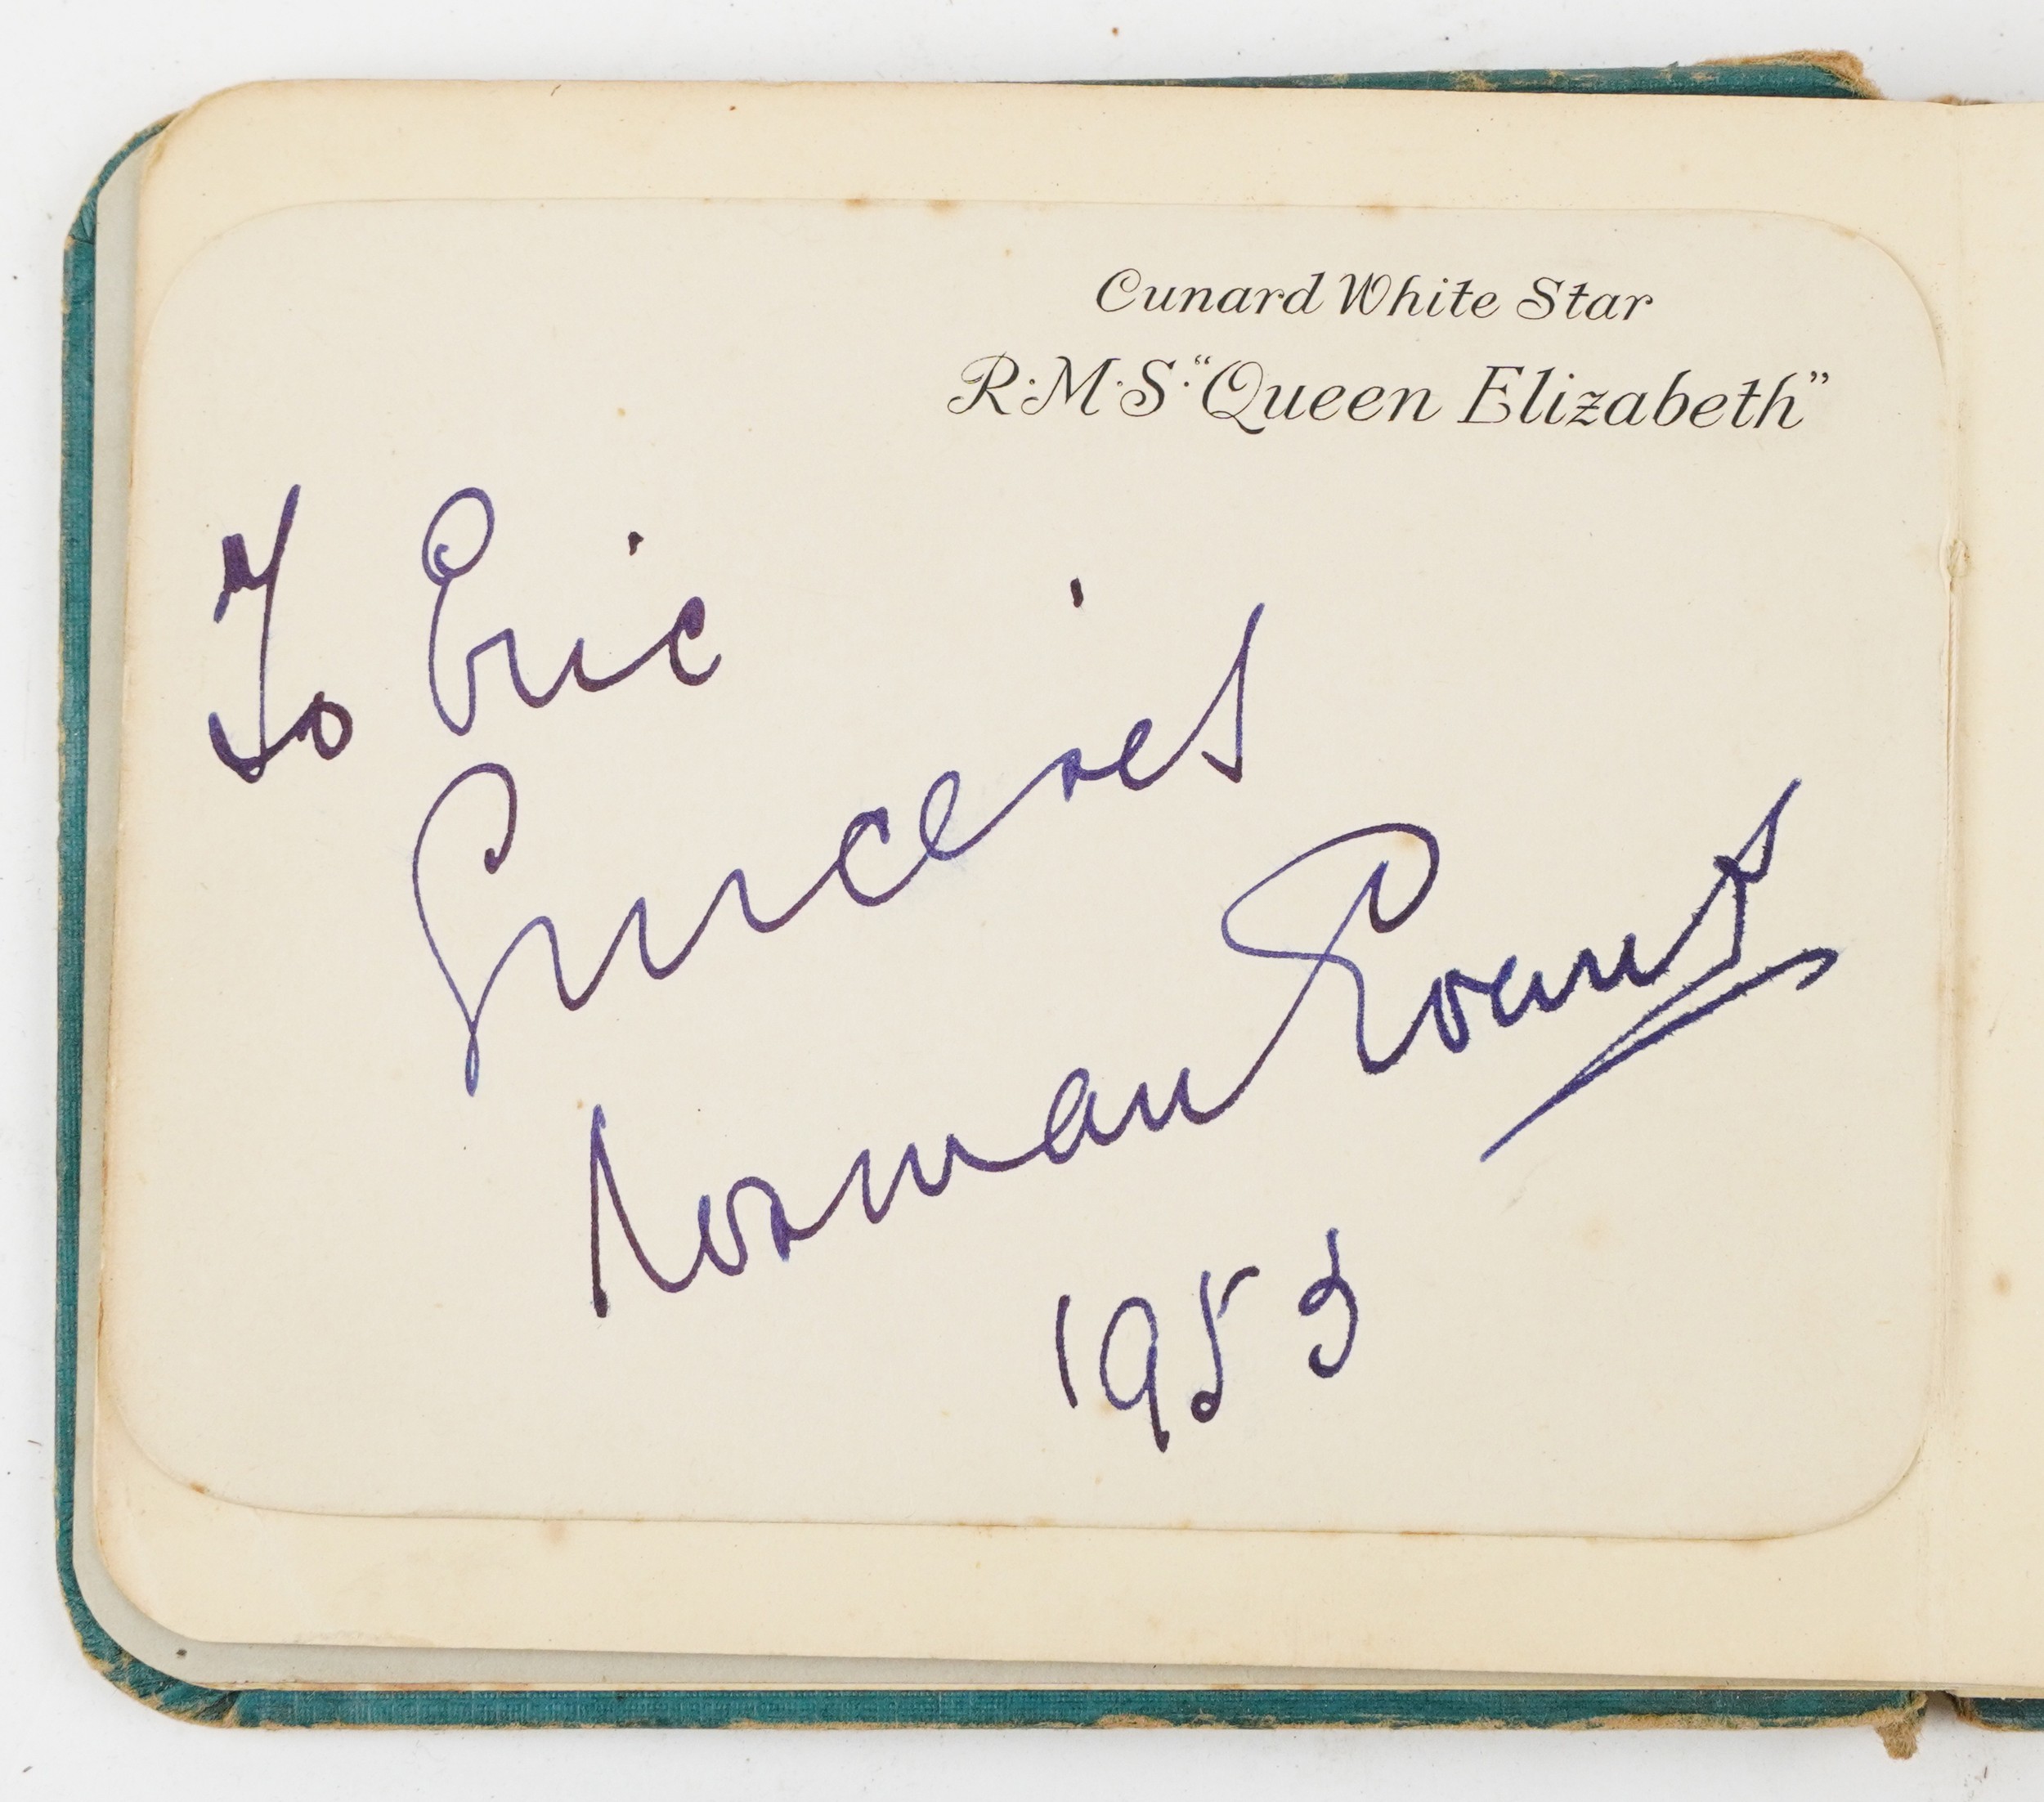 Cunard White Star
R·M·S· "Queen Elizabeth"
To Eric
Sincerely
Norman Evans
1953